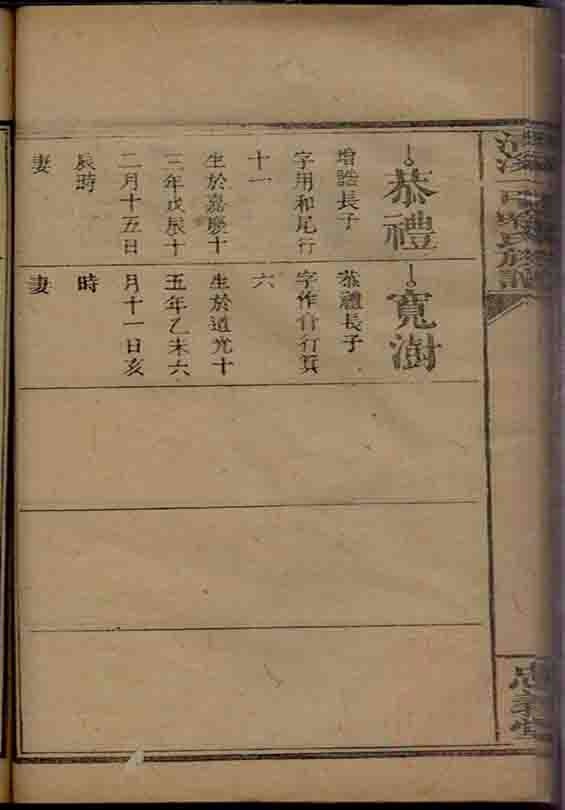 氏族譜
堂
恭禮
增誥長子
字用和尾行
十一
生於嘉慶十
三年戊辰十
二月十五日
辰時
妻
寬澍
恭禮長子
字作行箕
六
生於道光十
五年乙未六
月十一日亥
時
妻